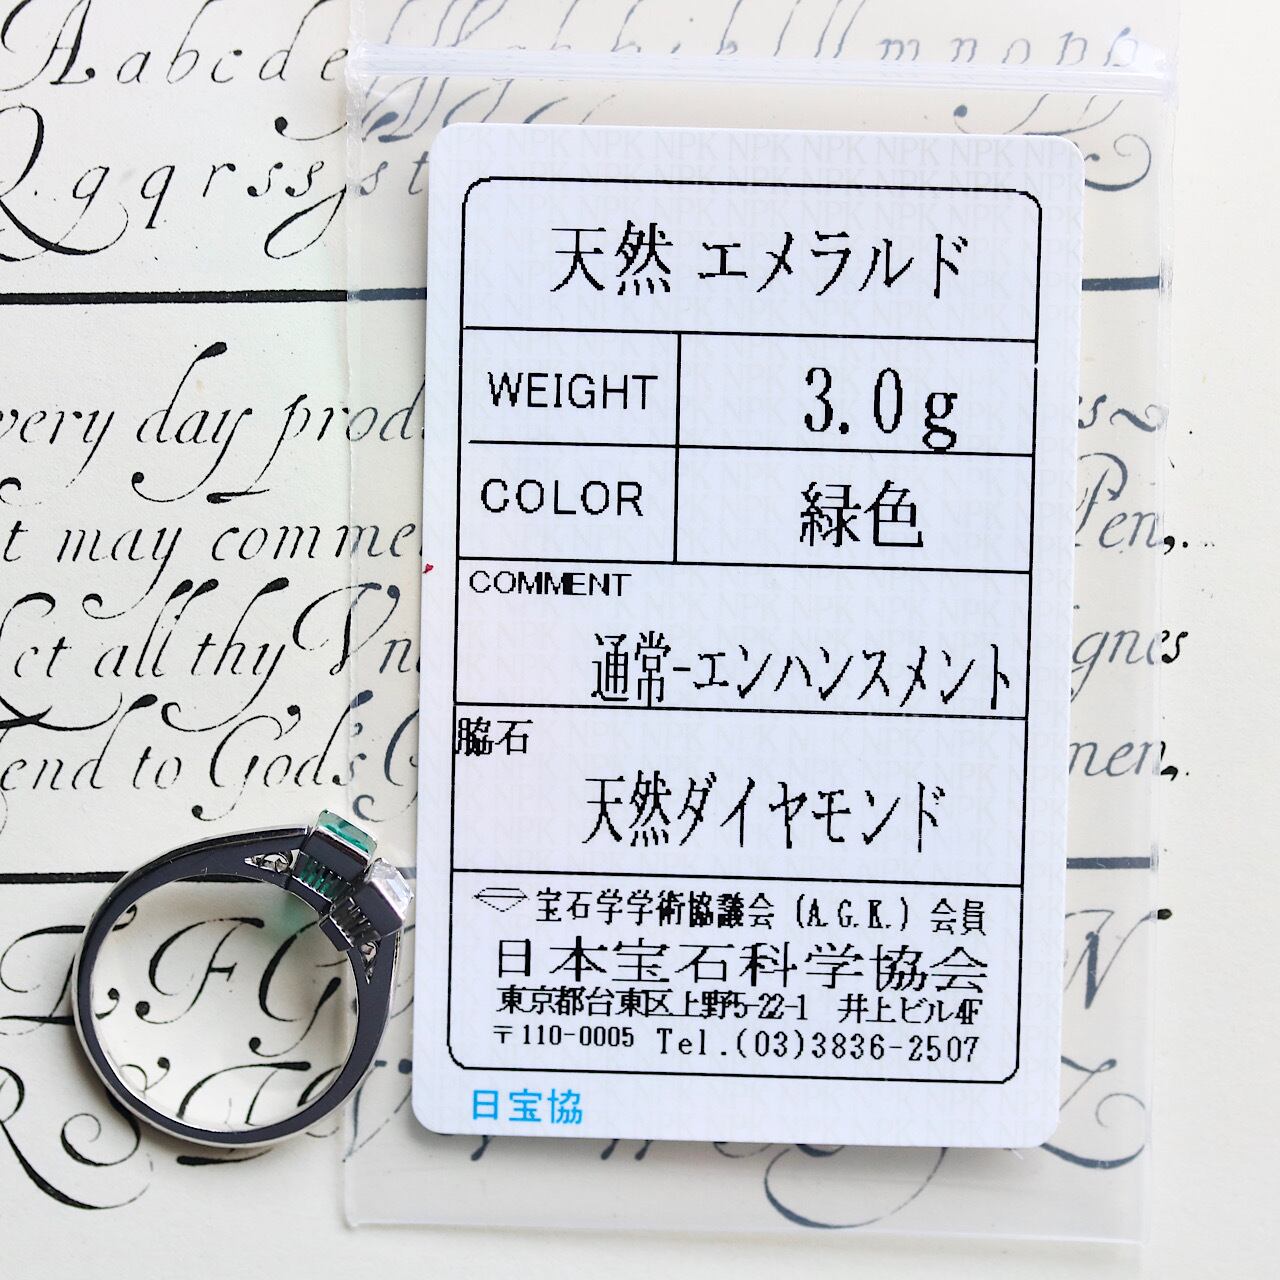 A a b c d e
Q q q r s s s s t
天然 エメラルド
WEIGHT 3.0g
COLOR 緑色
COMMENT
通常-エンハンスメント
脇石
天然ダイヤモンド
宝石学学術協議会 (A.G.K.) 会員
日本宝石科学協会
東京都台東区上野5-22-1 井上ビル4F
〒110-0005 Tel.(03)3836-2507
日宝協
very day prod
Pen,.
t may comme
all thy
gnes
end to God's
men,